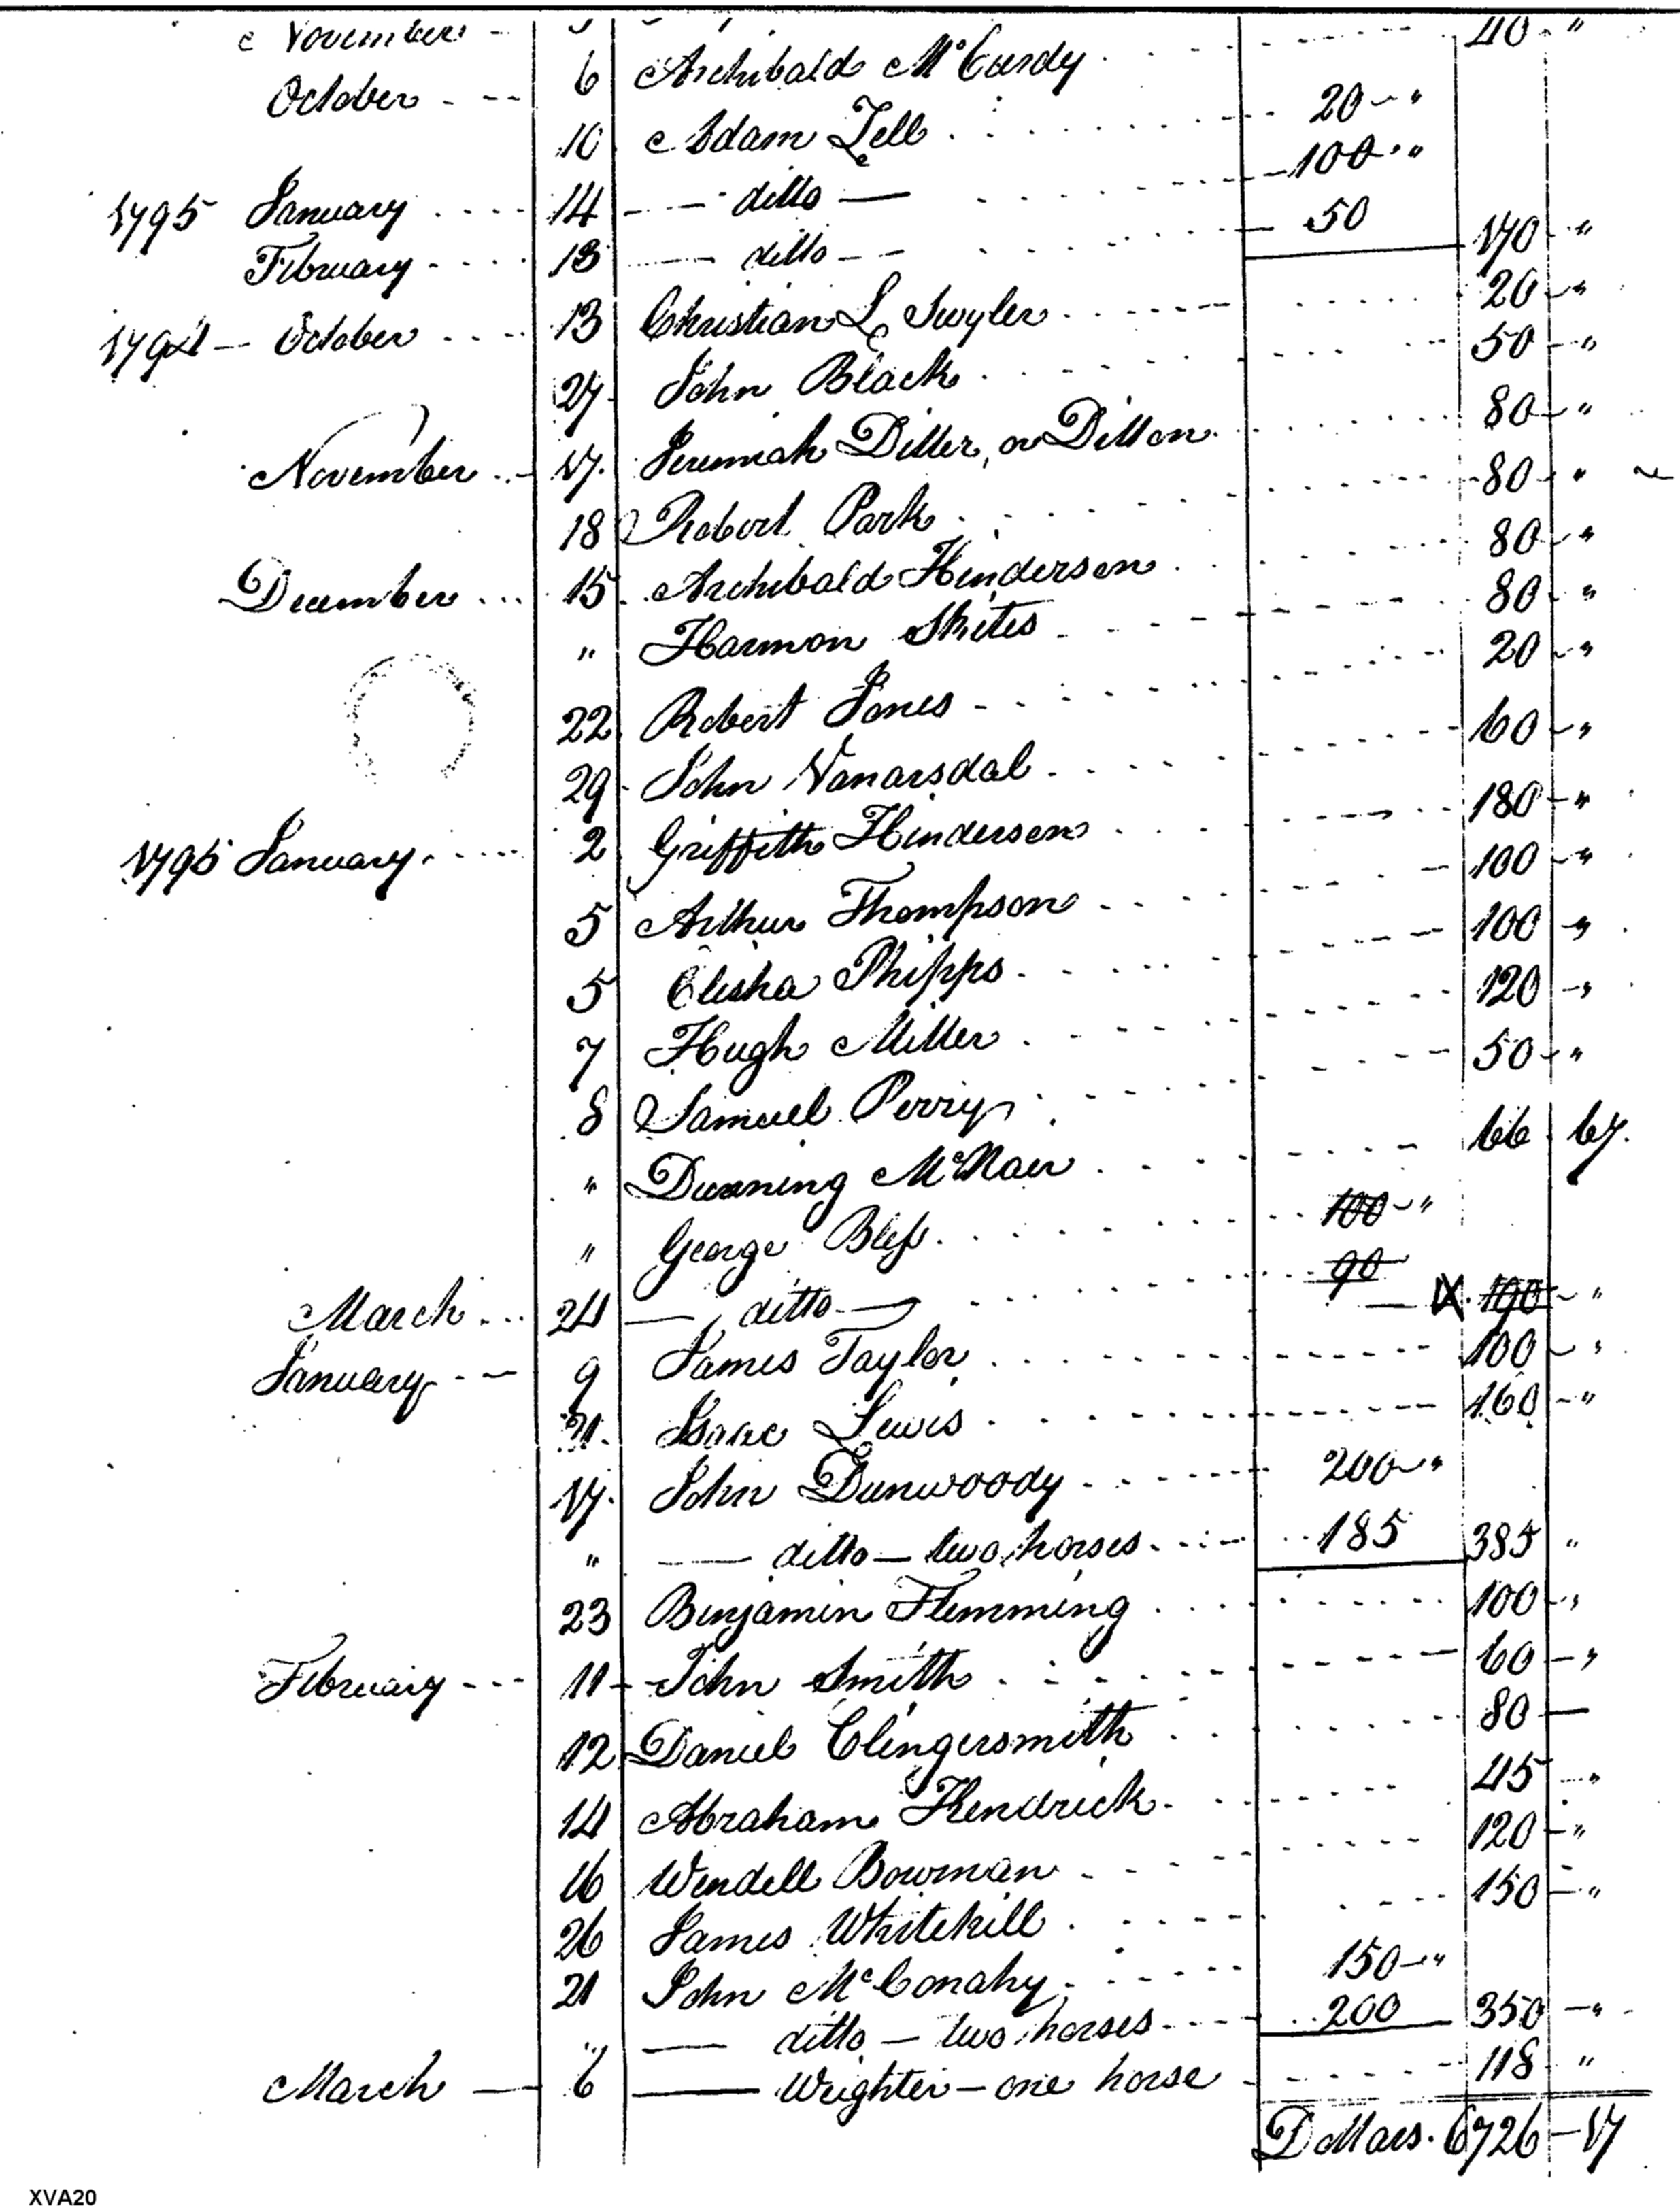 November -
October - -- 6 Archibald McCurdy 40 "
10 Adam Tell 20 - "
1795 January 14 - ditto - 100 "
February 13 - ditto - 50 170 - "
1794 - October 13 Christian L Swyler 20 - "
27 John Black 50 - "
November 17 Jeremiah Diller, or Dillon 80 - "
18 Robert Park 80 "
December 15 Archibald Hinderson 80 - "
" Harmon Skites 80 - "
22 Robert Jones 20 - "
29 John Vanarsdal 60 - "
1795 January 2 Griffith Hinderson 180 - "
5 Arthur Thompson 100 - "
5 Elisha Phipps 100 "
7 Hugh Miller 120 - "
8 Samuel Perry 50 - "
" Dunning McNair 66 67.
" George Bless 100 - "
March 24 - ditto - 90 X 190 - "
January 9 James Taylor 100 - "
21 Isaac Lewis 160 - "
17 John Dunwoody 200 - "
" - ditto - two horses 185 385 "
23 Benjamin Flemming 100 - "
February 11 - John Smith 60 - "
12 Daniel Clingersmith 80 -
14 Abraham Hendrick 45 - "
16 Wendell Bowman 120 - "
26 James Whitehill 150 - "
21 John McConahy 150 - "
" - ditto - two horses 200 350 - "
March - 6 - Wrighter - one horse 118 "
Dollars. 6726 - 17
XVA20